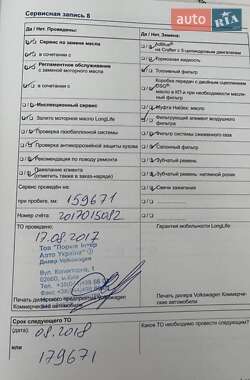 Сервисная запись 8
AUTO RIA
Да / Нет. Проведены:
Сервис по замене масла
в сочетании с
Регламентное обслуживание
с заменой моторного масла
в сочетании с
Инспекционный сервис
Залито моторное масло LongLife
Проверка газобаллонной системы
Проверка антикоррозийной защиты кузова
Рекомендации по поводу ремонта
Пожелание клиента
(отметить также в заказ-наряде)
Сервис проведён
при пробеге, км: 159671
Номер счёта: 2017015082
ТО проведено:
17.08.2017
Тов "Порше Інтер
Авто Україна"
Дилер Volkswagen
02660, м.Київ
Печать дилерского предприятия Volkswagen
Коммерческие автомобили
Да / Нет. Замена:
AdBlue®
на Crafter с 5-цилиндровым двигателем
Тормозная жидкость
Топливный фильтр
Коробка передач с двойным сцеплением
DSG®
масло в КП и при необходимости масля-
ный фильтр
Муфта Haldex: масло
Фильтрующий элемент воздушного
фильтра
Фильтр системы сжиженного газа
Салонный фильтр
Зубчатый ремень
Зубчатый ремень, натяжной
Свечи зажигания
Гарантия мобильности LongLife
Печать дилера Volkswagen
Коммерческие автомобили
Срок следующего ТО
(дата) 08.2018
или
179671
Какое ТО необходимо провести следующим